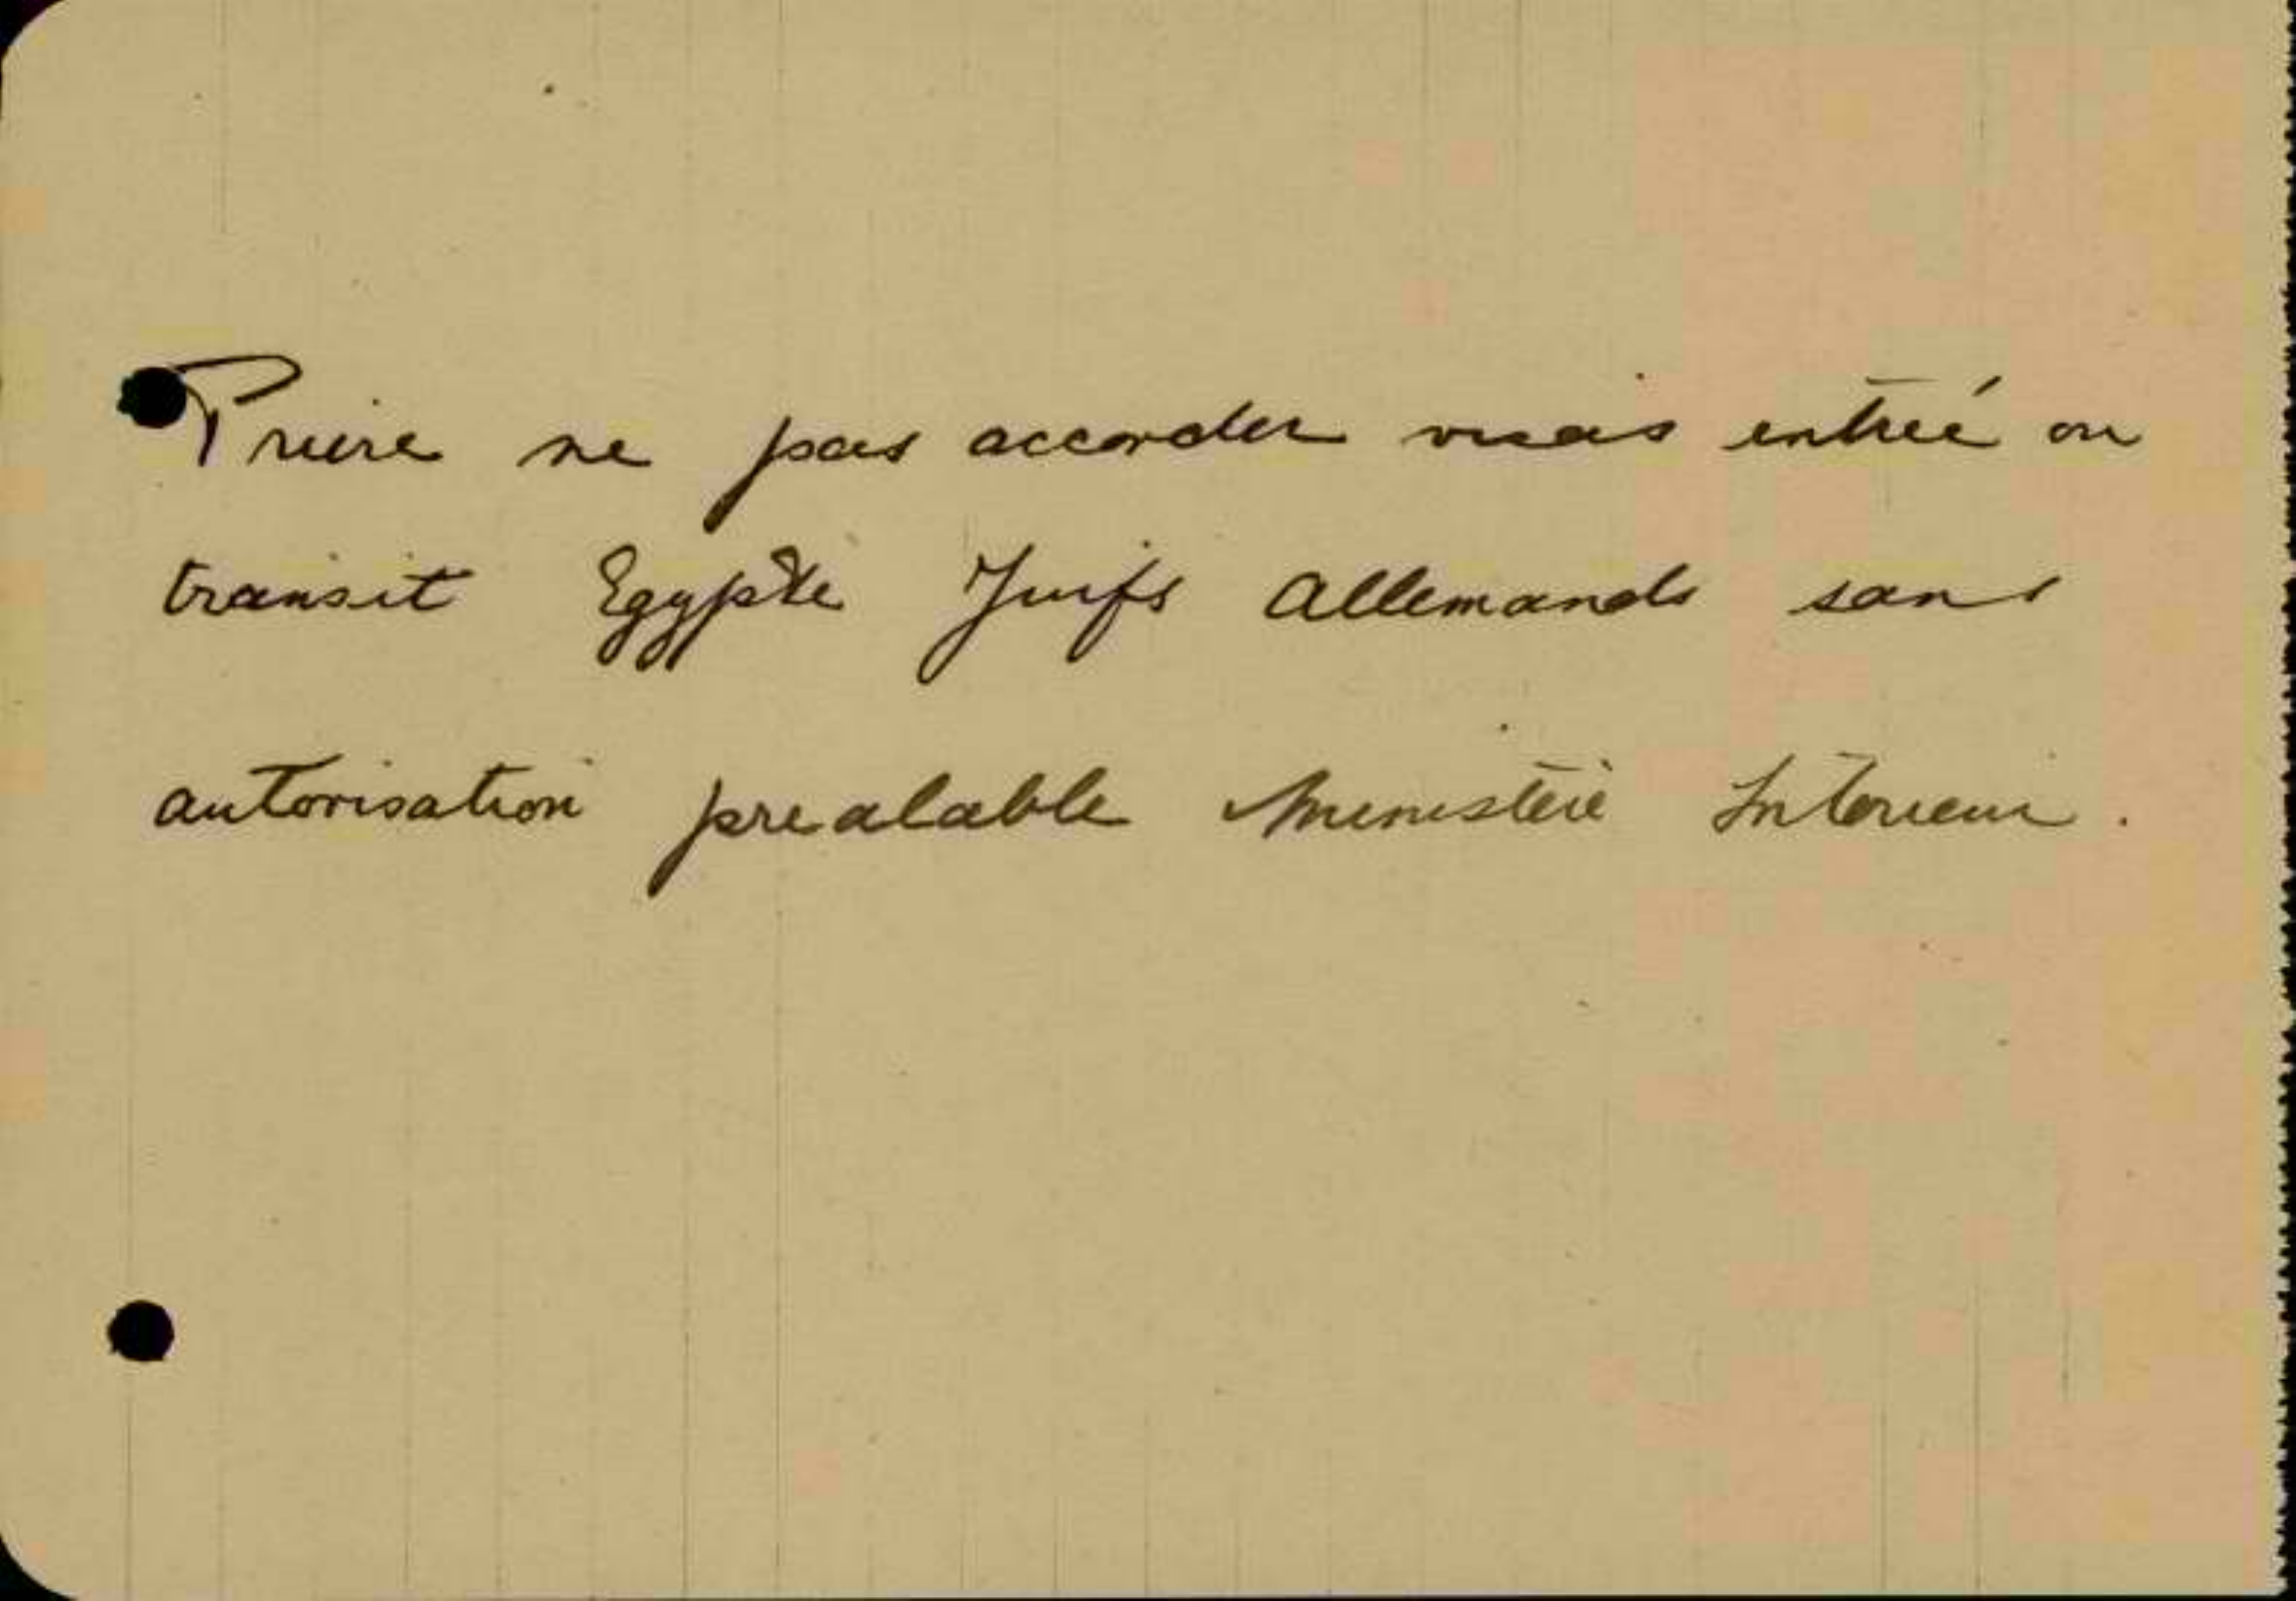 Prière ne pas accorder visas entrée ou
transit Egypte Juifs Allemands sans
autorisation prealable Ministère Intérieur.